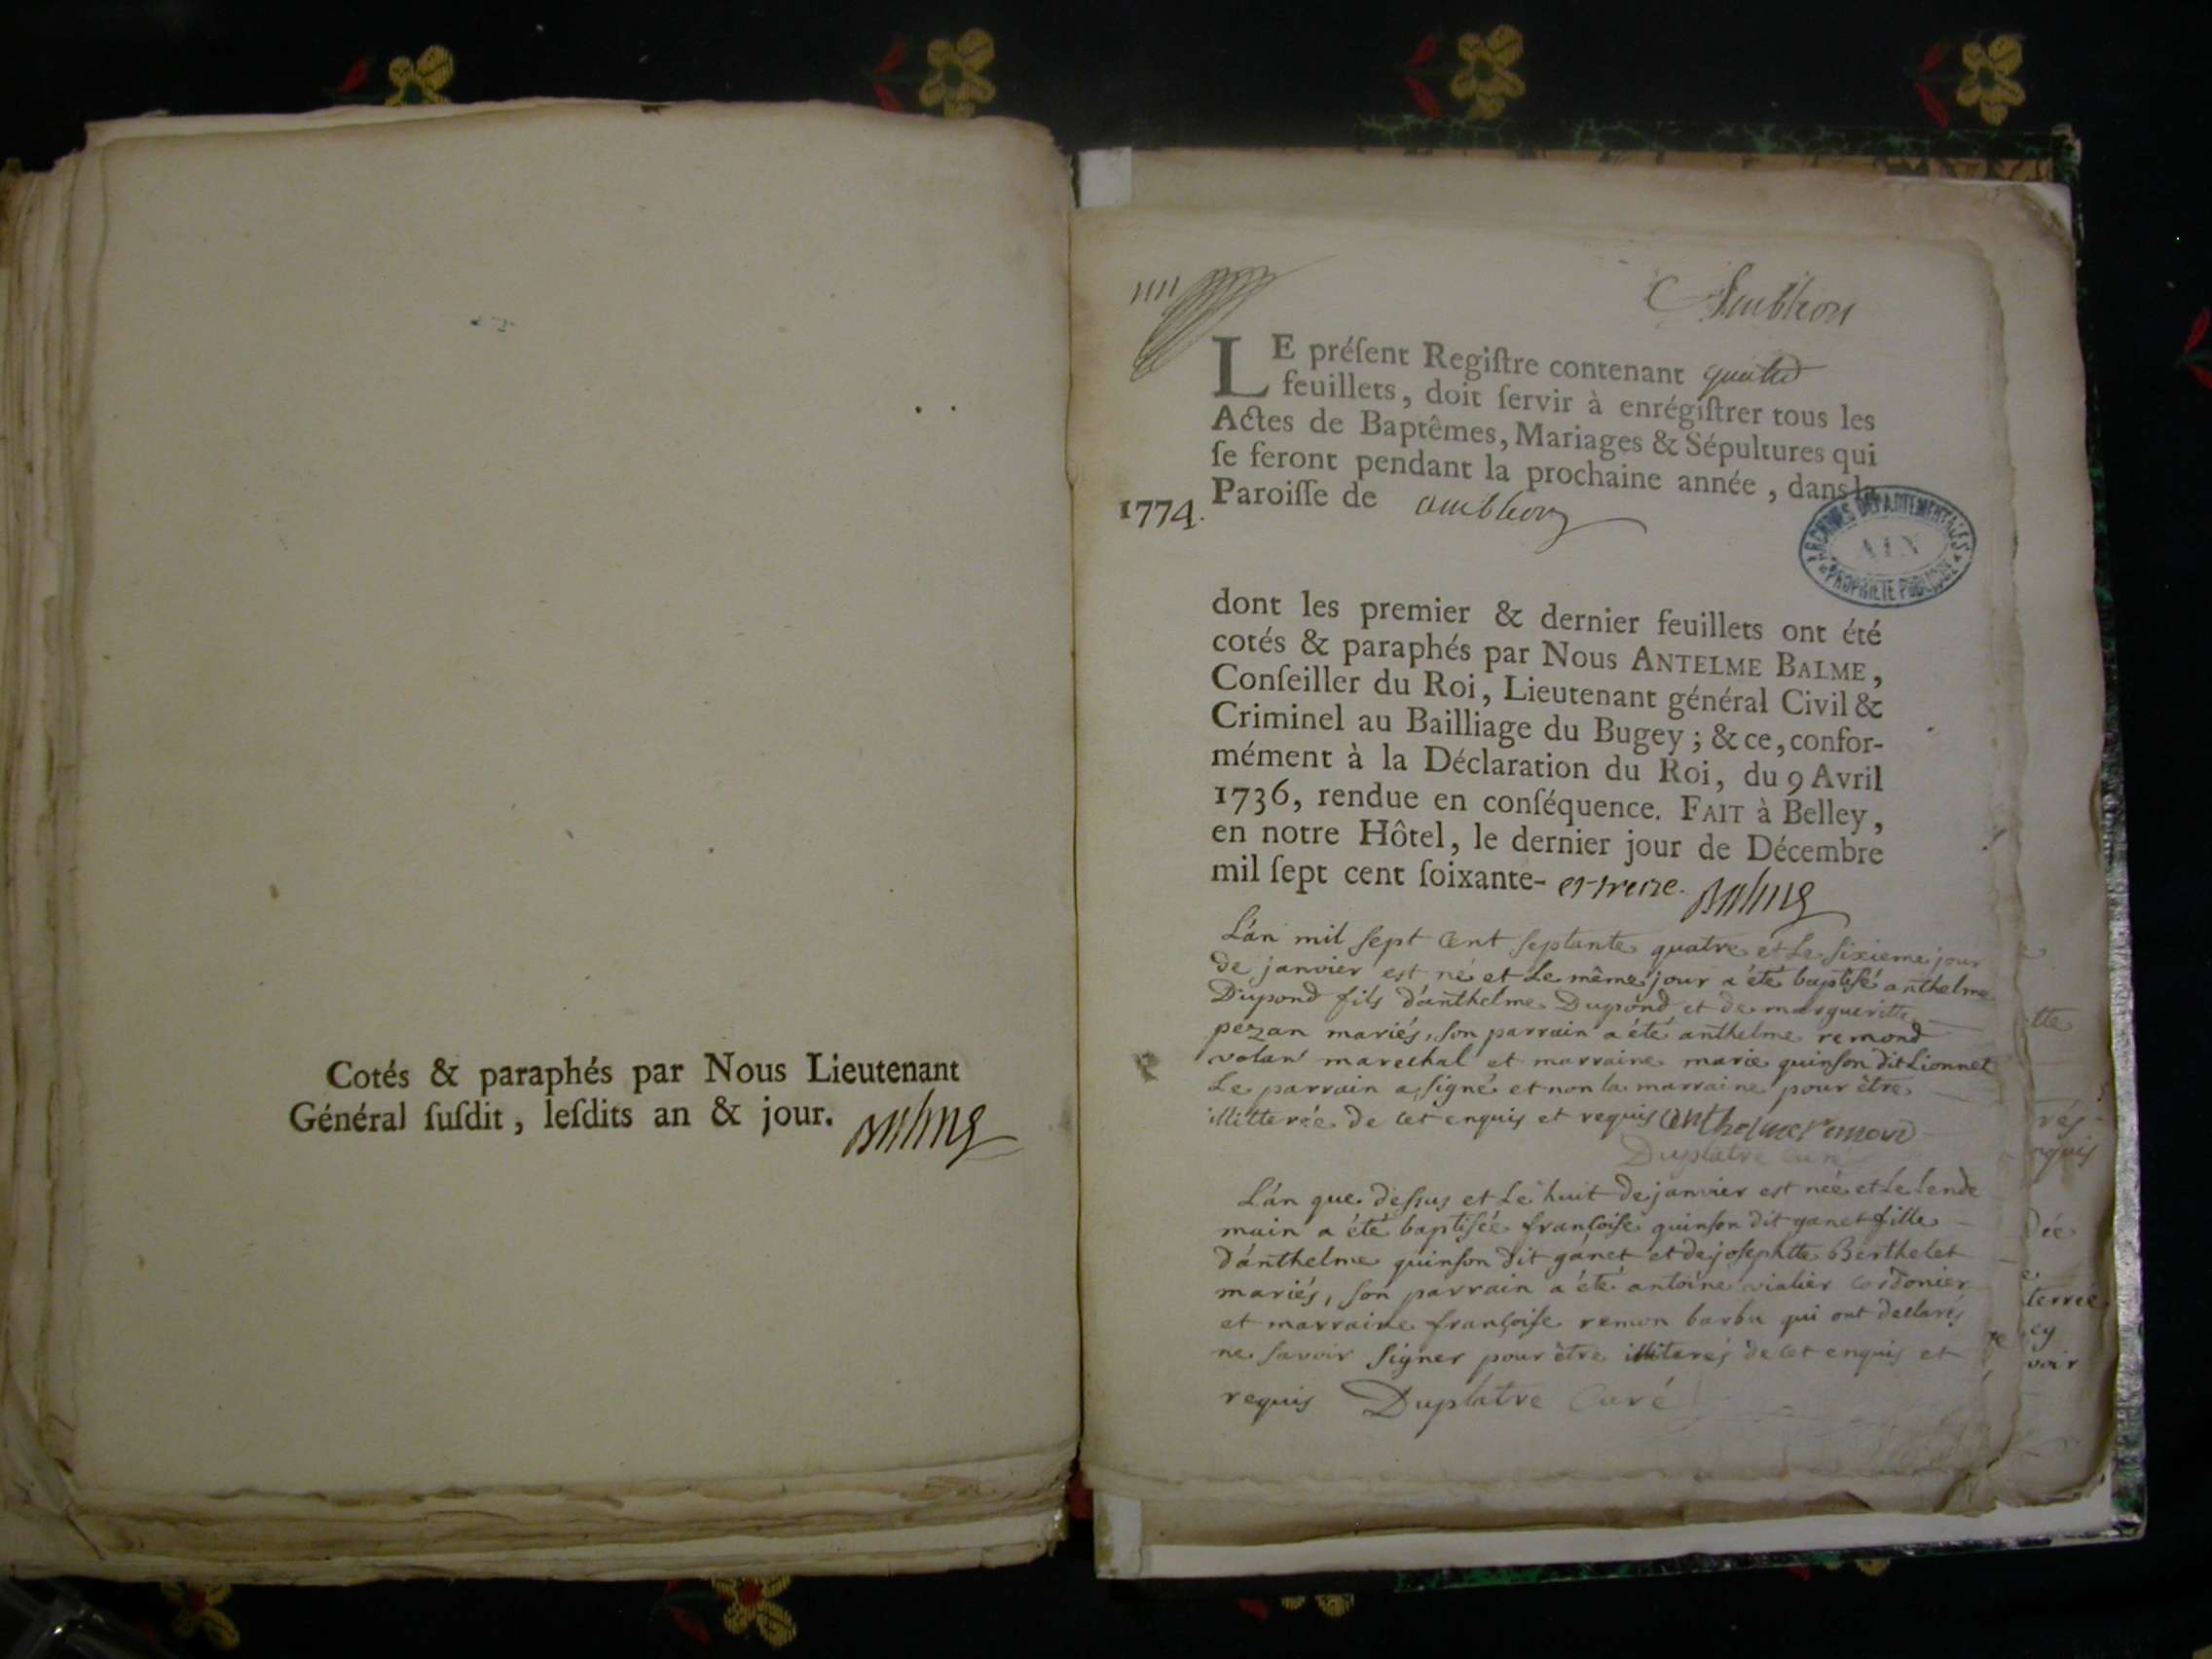 Cotés & paraphés par Nous Lieutenant
Général ſuſdit, leſdits an & jour. Balme
Ambleon
LE préſent Regiſtre contenant quatre
feuillets, doit ſervir à enrégiſtrer tous les
Actes de Baptêmes, Mariages & Sépultures qui
ſe feront pendant la prochaine année, dans la
1774. Paroiſſe de ambleon
ARCHIVES DEPARTEMENTALES
AIN
PROPRIETE PUBLIQUE
dont les premier & dernier feuillets ont été
cotés & paraphés par Nous ANTELME BALME,
Conſeiller du Roi, Lieutenant général Civil &
Criminel au Bailliage du Bugey; & ce, confor-
mément à la Déclaration du Roi, du 9 Avril
1736, rendue en conſéquence. FAIT à Belley,
en notre Hôtel, le dernier jour de Décembre
mil ſept cent ſoixante- et treize. Balme
L'án mil sept cent septante quatre et le sixieme jour
de janvier est né et le même jour a été baptisé anthelme
Dupond fils d'ánthelme Dupond et de margueritte
pezan mariés, son parrain a été anthelme remond
volan marechal et marraine marie quinson dit Lionnet
Le parrain a signé et non la marraine pour être
illitterée de cet enquis et requis anthelme remond
Duplatre curé
L'án que dessus et le huit de janvier est née et le lende
main a été baptisée françoise quinson dit ganet fille
d'ánthelme quinson dit gánet et de josephtte Berthelet
mariés, son parrain a été antoine vialier cordonier
et marraine françoise remon barbu qui ont declarés
ne savoir signer pour être illiterés de cet enquis et
requis Duplatre Curé
tte
rés
nquis
dée
terrée
ey
voir